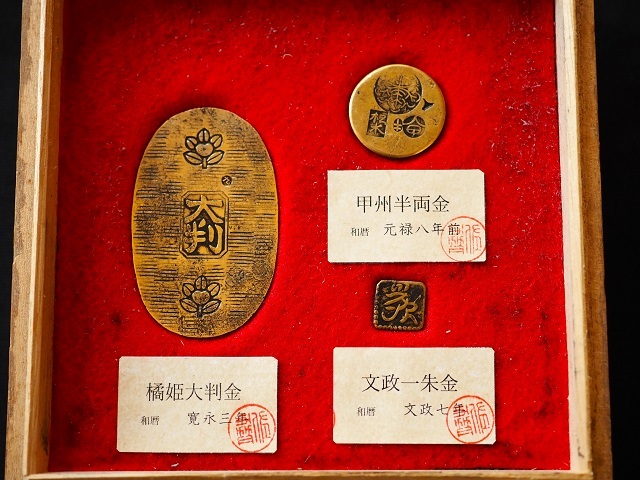 大判
橘姫大判金
和暦 寛永三年
甲州半両金
和暦 元禄八年前
文政一朱金
和暦 文政七年